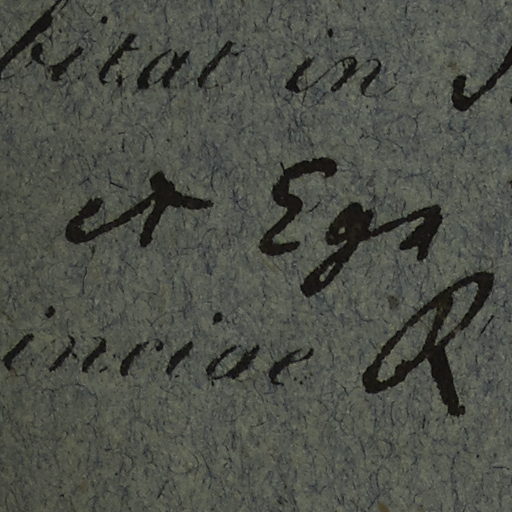 bitat in
et Ega
inciae R